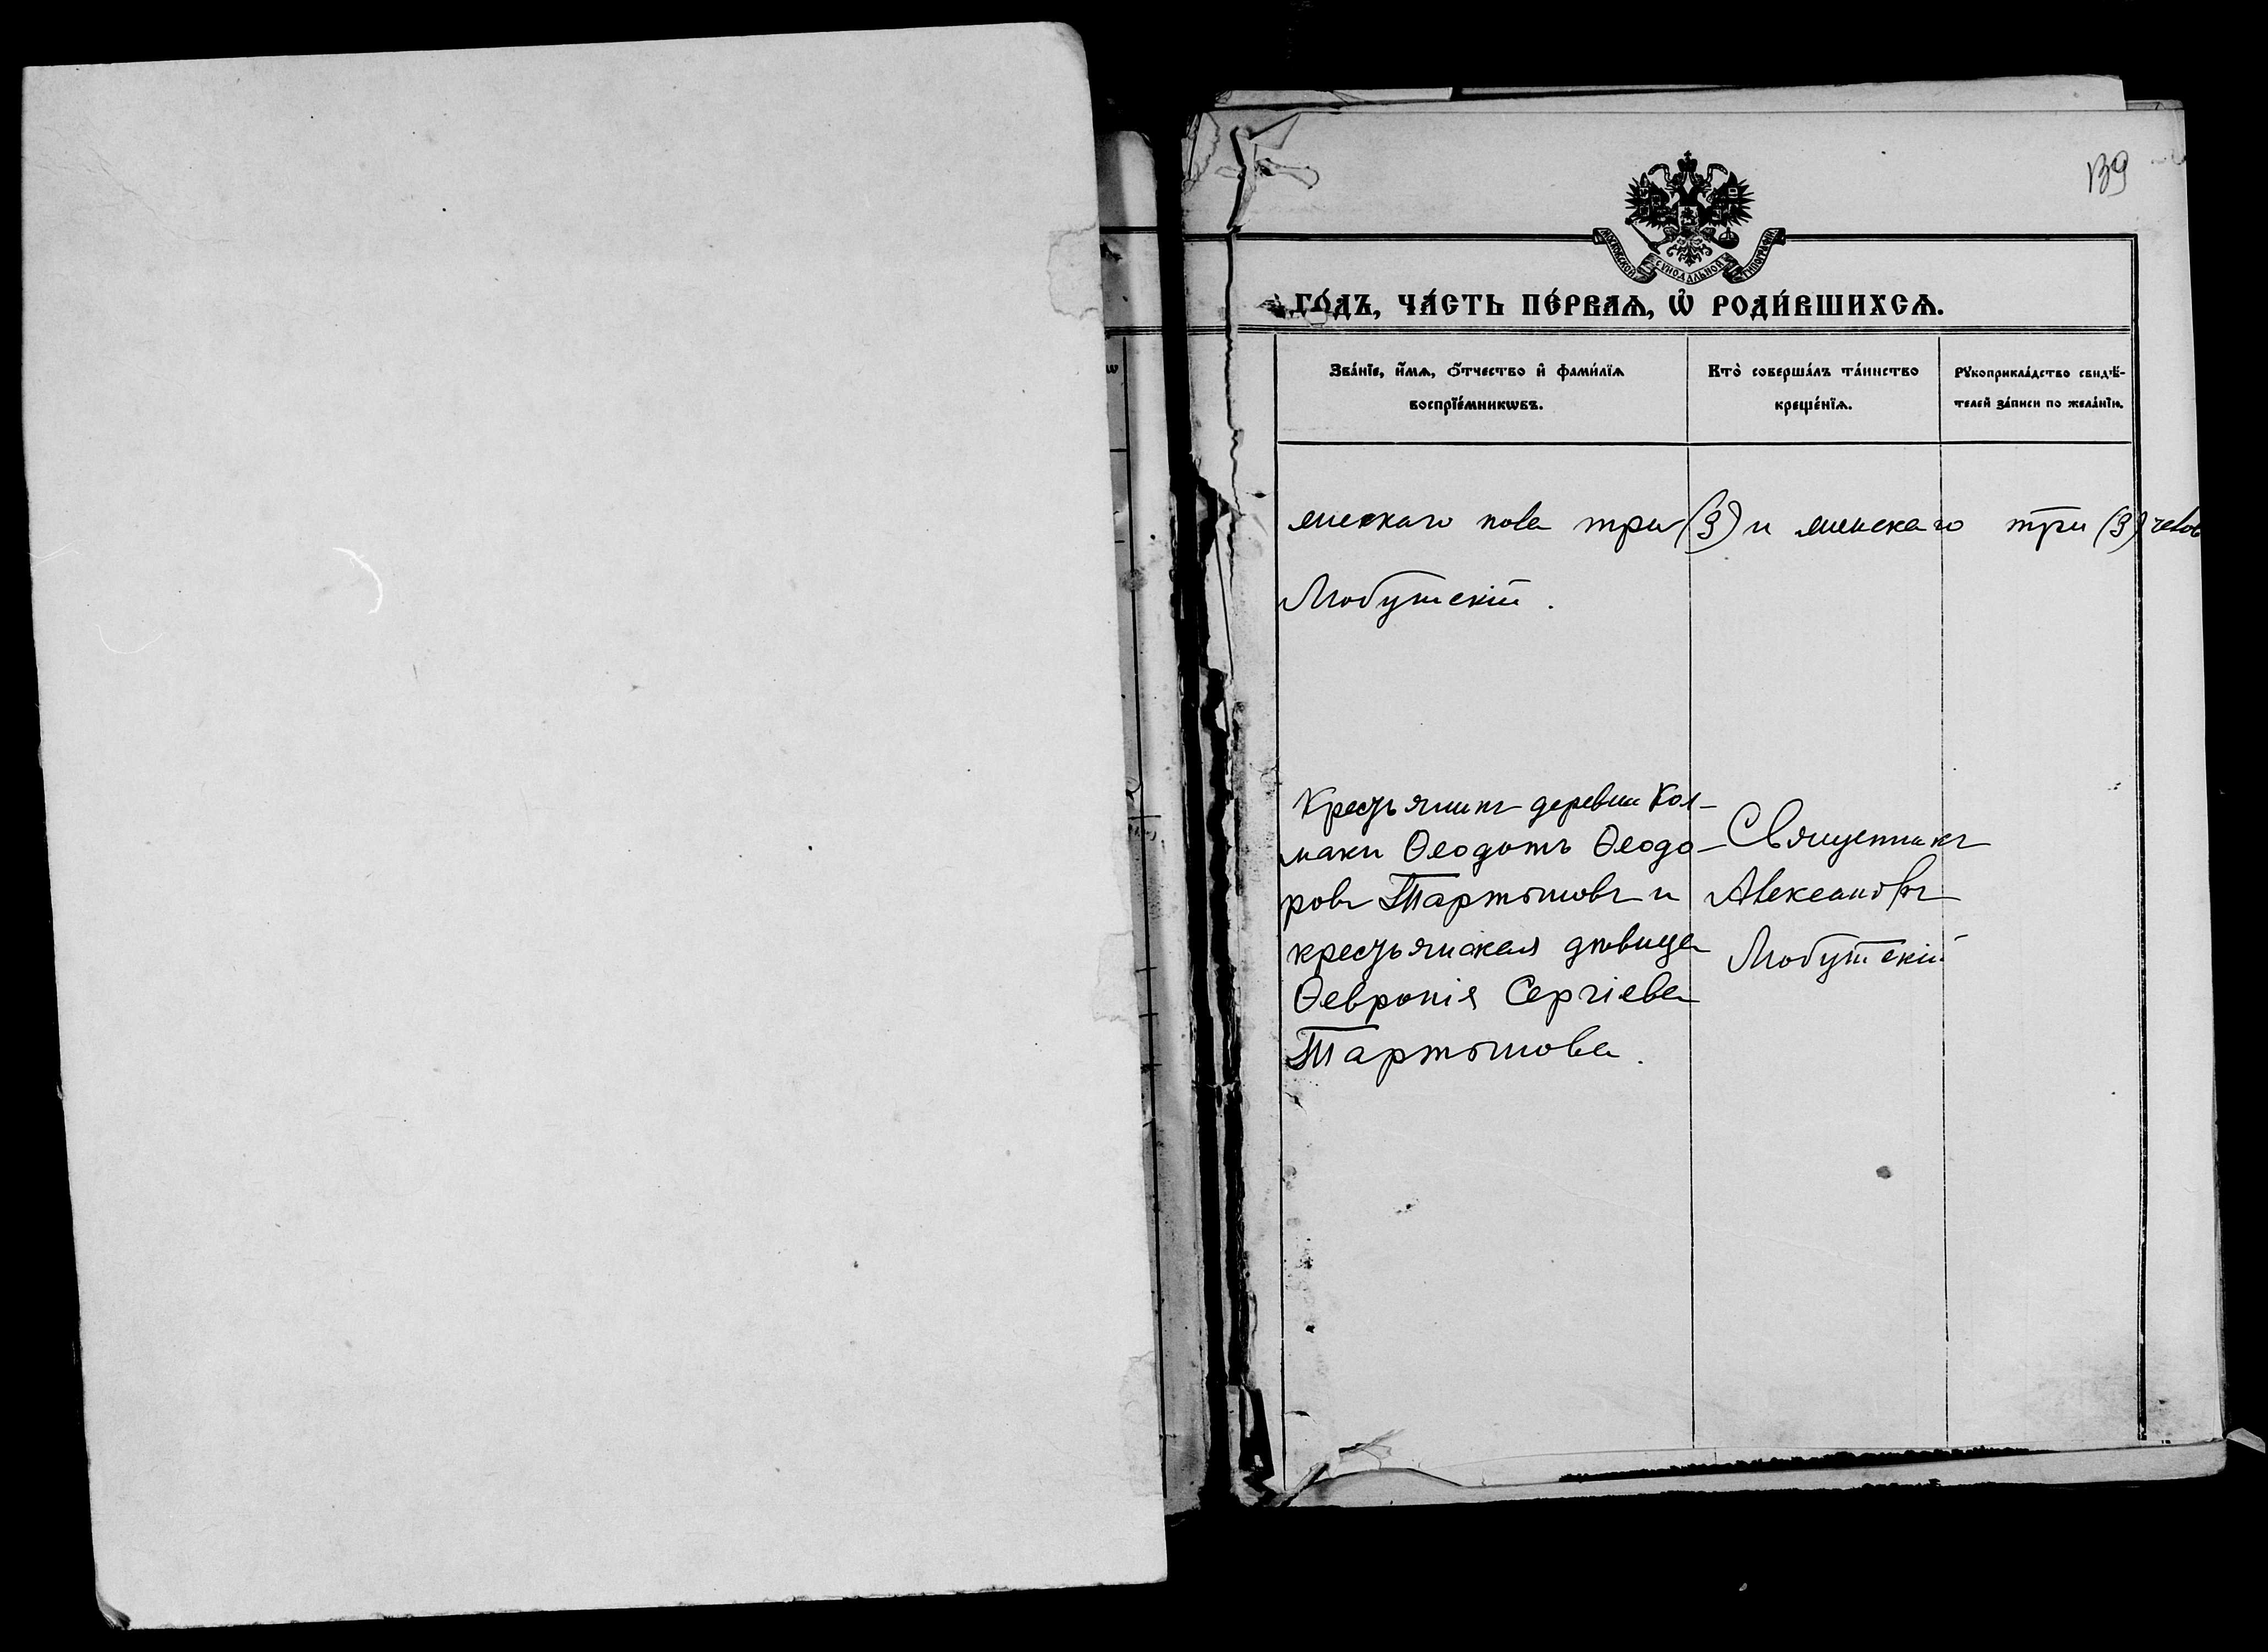 139
МОСКОВСКОЙ СУНОДАЛЬНОЙ ТИПОГРАФІИ
ГО́ДЪ, ЧА́СТЬ ПЕ́РВАѦ, Ѡ҆ РОДИ́ВШИХСѦ.
Зва́нїе, и҆́мѧ, ѻ҆́тчество и҆ фами́лїѧ
воспрїе́мникѡвъ.
Кто̀ соверша́лъ та́инство
креще́нїѧ.
Рꙋкоприкла́дство свидѣ́-
телей за́писи по жела́нїю.
мужскаго пола три (3) и женскаго три (3) челов
Любутскій.
Крестьянинъ деревни Кол-
маки Ѳеодотъ Ѳеодо-
ровъ Тартышовъ и
крестьянская дѣвица
Ѳевронія Сергіева
Тартышова.
Священникъ
Александръ
Любутскій